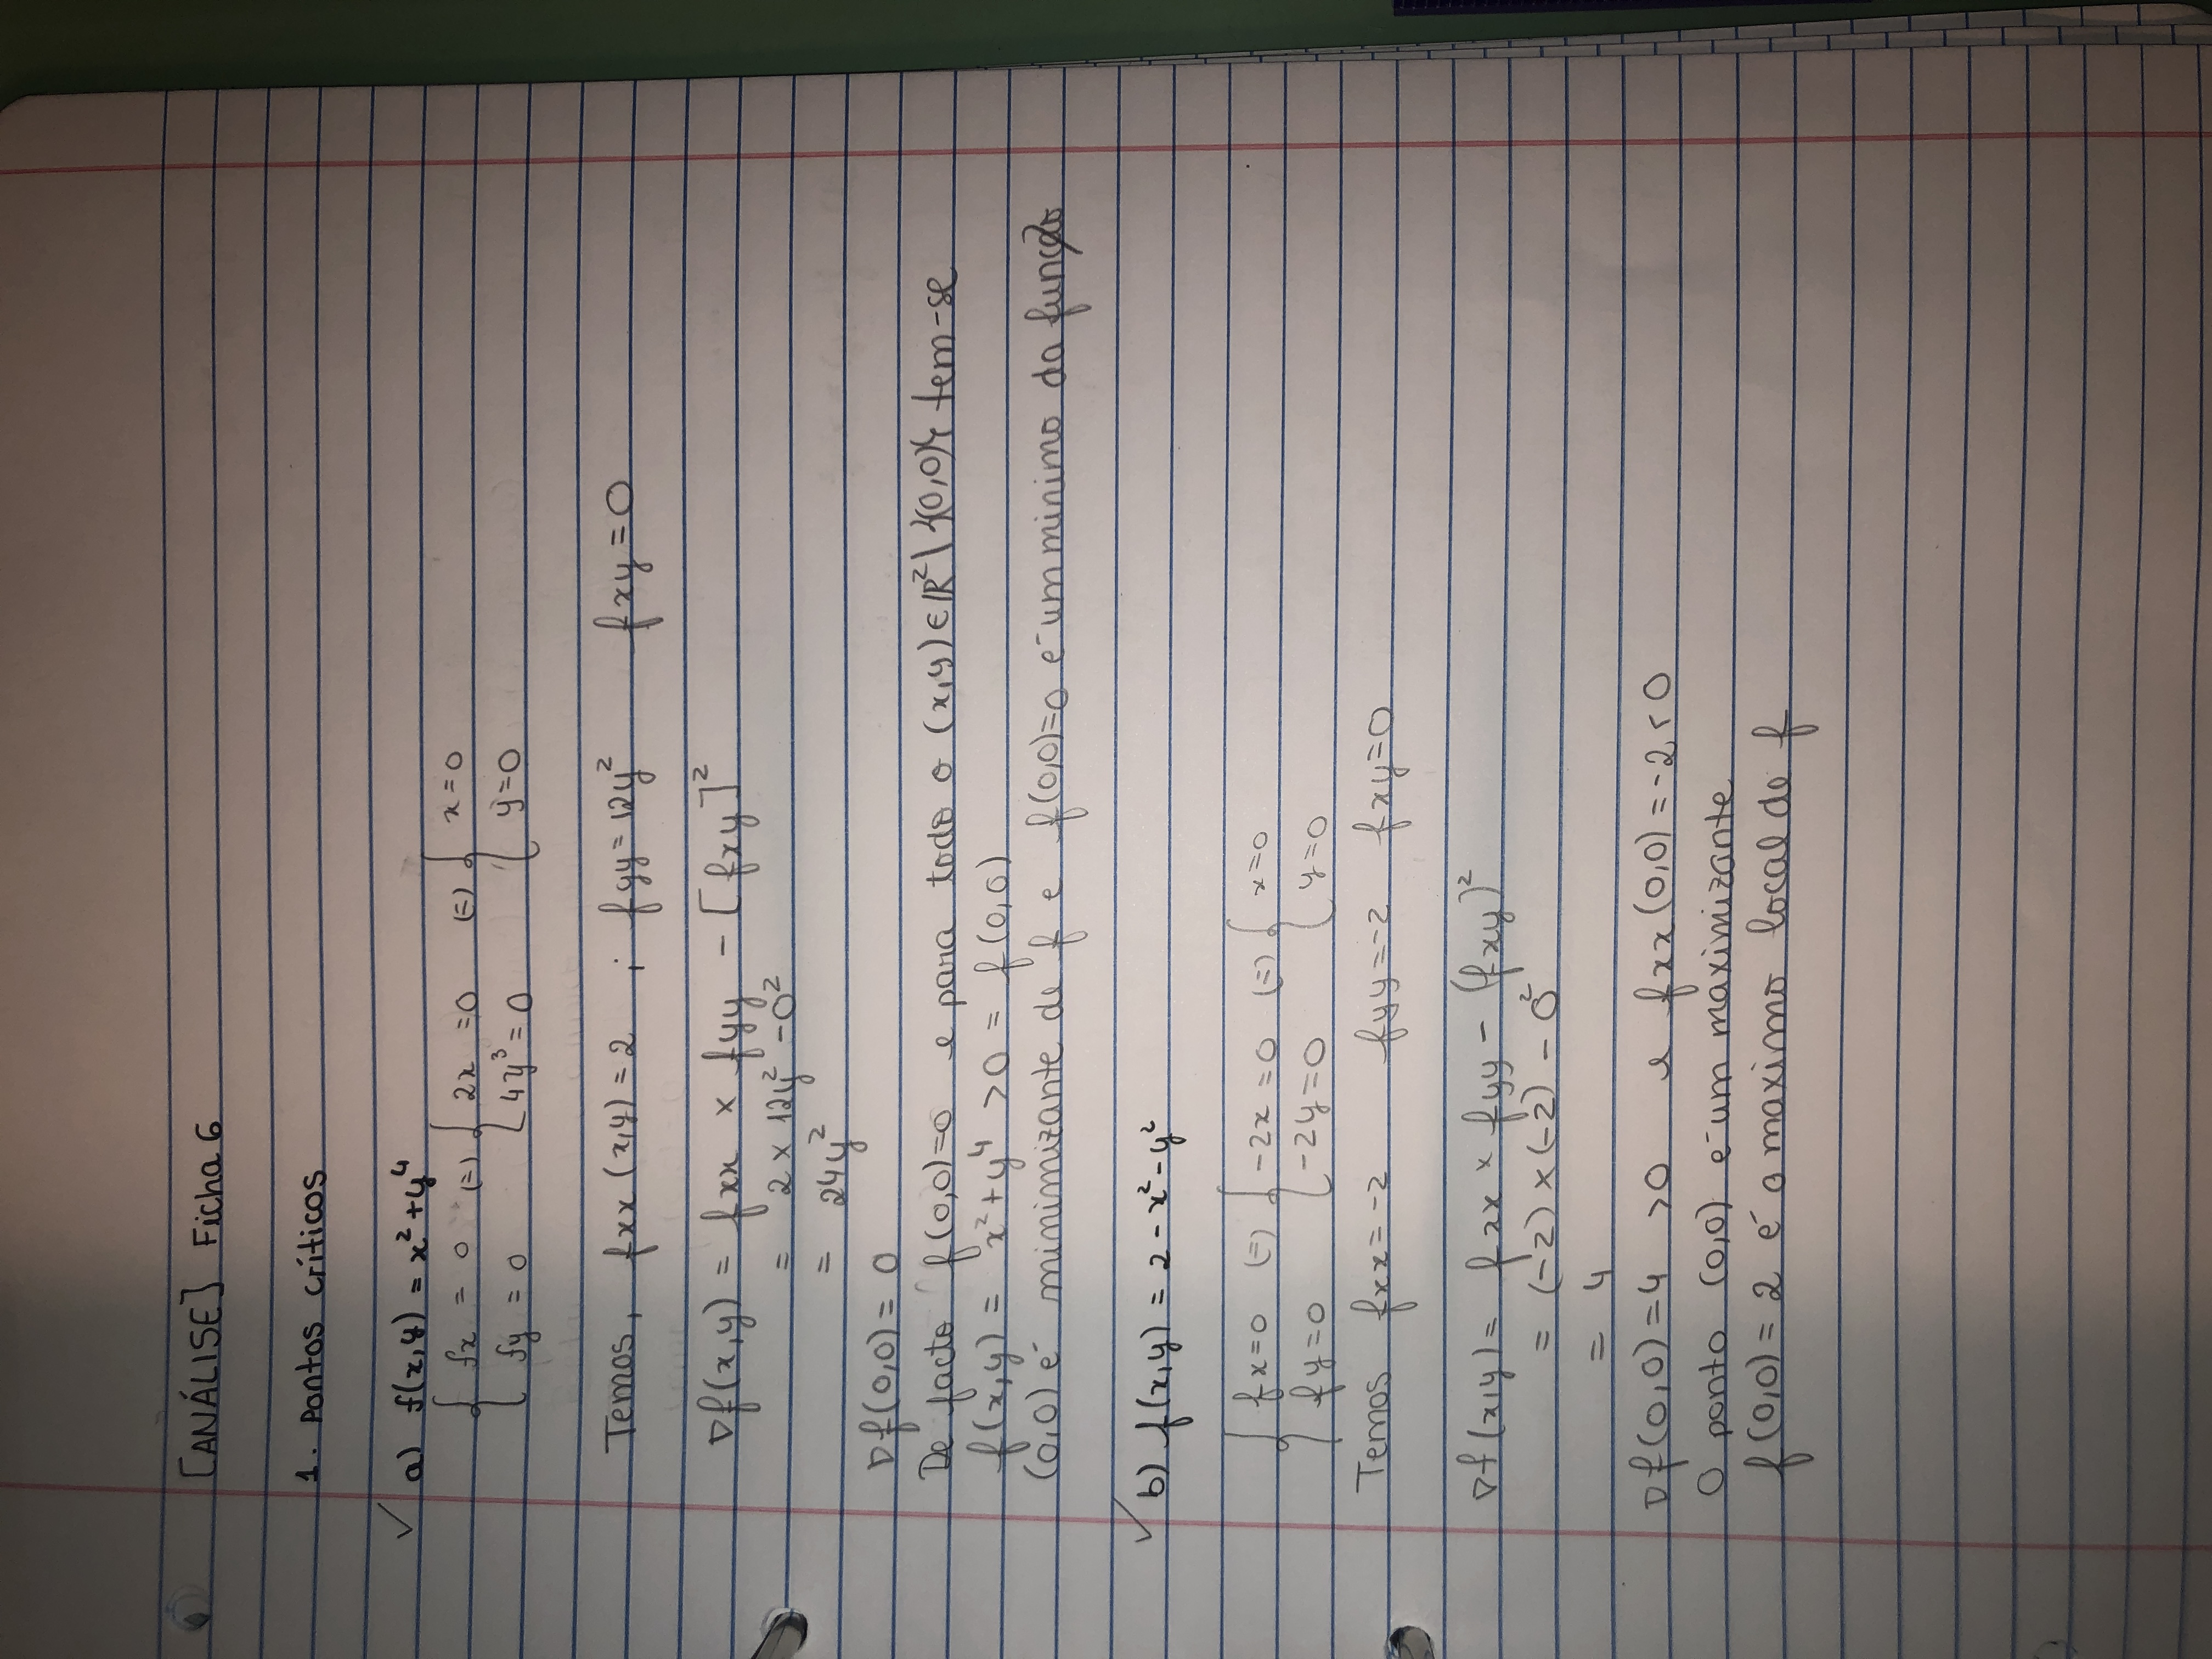 [ANÁLISE] Ficha 6
1. Pontos críticos
✓ a) f(x,y) = x² + y⁴
{ fx = 0 (=) { 2x = 0 (=) { x = 0
fy = 0 4y³ = 0 y = 0
Temos, fxx (x,y) = 2 ; fyy = 12y² fxy = 0
∇f(x,y) = fxx × fyy - [fxy]²
= 2 × 12y² - 0²
= 24y²
∇f(0,0) = 0
De facto f(0,0)=0 e para todo o (x,y) ∈ ℝ² \ {(0,0)} tem-se
f(x,y) = x² + y⁴ > 0 = f(0,0)
(0,0) é minimizante de f e f(0,0)=0 é um minimo da função
✓ b) f(x,y) = 2 - x² - y²
{ fx=0 (=) { -2x = 0 (=) { x=0
fy=0 -2y=0 y=0
Temos fxx = -2 fyy = -2 fxy=0
∇f(x,y) = fxx × fyy - (fxy)²
= (-2) × (-2) - 0²
= 4
∇f(0,0) = 4 > 0 e fxx (0,0) = -2 < 0
O ponto (0,0) é um maximizante
f(0,0) = 2 é o maximo local de f